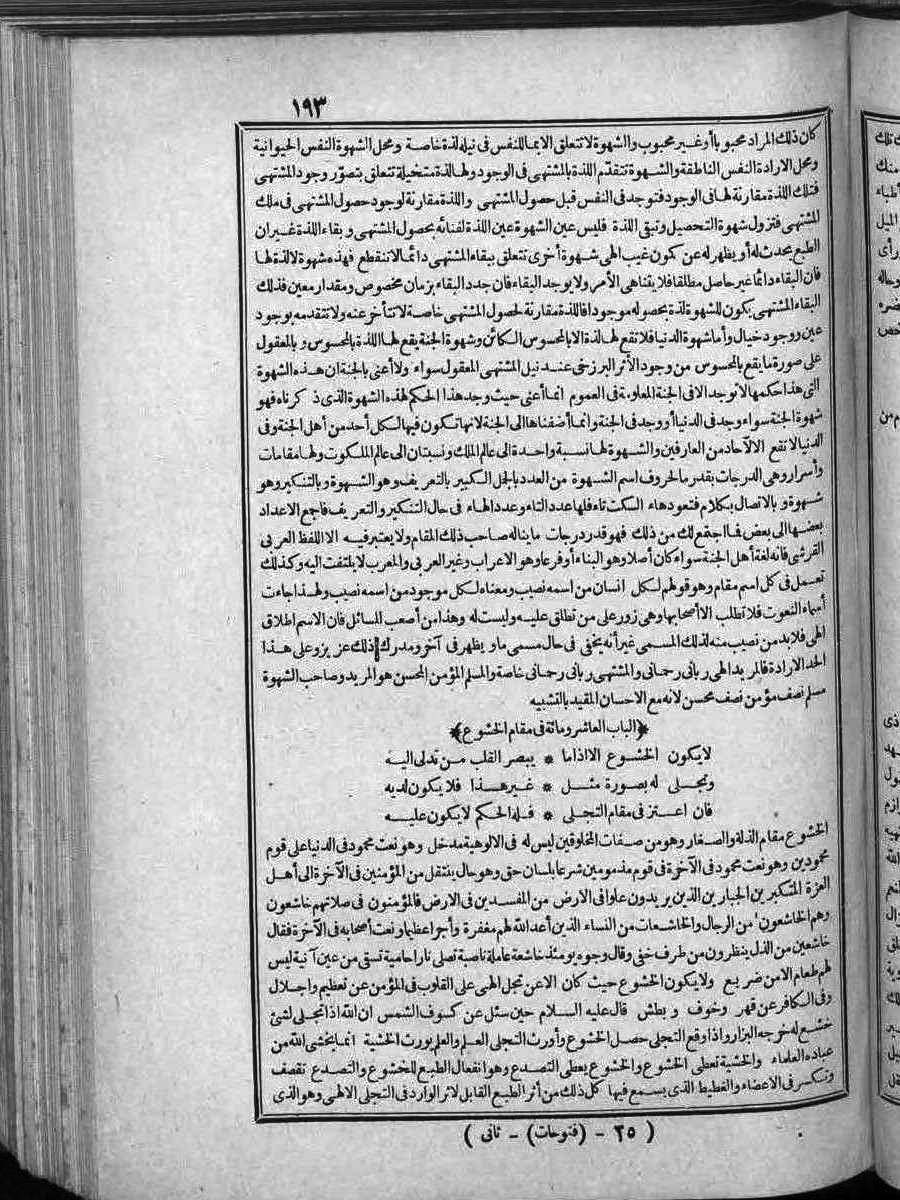 ١٩٣
كان ذلك المراد محبوبا أو غير محبوب والشهوة لا تتعلق الا بما للنفس فى نيله لذة خاصة ومحل الشهوة النفس الحيوانية
ومحل الارادة النفس الناطقة والشهوة تتقدّم اللذة بالمشتهى فى الوجود ولها لذة متخيلة تتعلق بتصوّر وجود المشتهى
فتلك اللذة مقارنة لها فى الوجود فتوجد فى النفس قبل حصول المشتهى واللذة مقارنة لوجود حصول المشتهى فى ملك
المشتهى فتزول شهوة التحصيل وتبقى اللذة فليس عين الشهوة عين اللذة لفنائه بحصول المشتهى وبقاء اللذة غير ان
الطبع يحدث له أو يظهر له عن كمون غيب الهى شهوة أخرى تتعلق ببقاء المشتهى دائما لا تنقطع فهذه شهوة لا لذة لها
فان البقاء دائما غير حاصل مطلقا فلا يتناهى الأمر ولا يوجد البقاء فان جدد البقاء بزمان مخصوص ومقدار معين فذلك
البقاء المشتهى يكون للشهوة لذة بحصوله موجودا فاللذة مقارنة لحصول المشتهى خاصة لا تتأخر عنه ولا تتقدمه بوجود
عين ووجود خيال وأما شهوة الدنيا فلا تقع لها لذة الا بالمحسوس الكائن وشهوة الجنة يقع لها اللذة بالمحسوس وبالمعقول
على صورة ما يقع بالمحسوس من وجود الأثر البرزخى عند نيل المشتهى المعقول سواء ولا أعنى بالجنة ان هذه الشهوة
التى هذا حكمها لا توجد الا فى الجنة المعلومة فى العموم انما أعنى حيث وجد هذا الحكم لهذه الشهوة الذى ذكرناه فهو
شهوة الجنة سواء وجد فى الدنيا أو وجد فى الجنة وانما أضفناها الى الجنة لانها تكون فيها لكل أحد من أهل الجنة وفى
الدنيا لا تقع الا لآحاد من العارفين والشهوة لها نسبة واحدة الى عالم الملك ونسبتان الى عالم الملكوت ولها مقامات
وأسرار وهى الدرجات بقدر ما لحروف اسم الشهوة من العدد بالجل الكبير بالتعريف وهو الشهوة وبالتنكير وهو
شهوة وبالاتصال بكلام فتعود هاء السكت تاء فلها عدد التاء وعدد الهاء فى حال التنكير والتعريف فاجمع الاعداد
بعضها الى بعض فما اجتمع لك من ذلك فهو قدر درجات ما يناله صاحب ذلك المقام ولا يعتبر فيه الا اللفظ العربى
القرشى فانه لغة أهل الجنة سواء كان أصلا وهو البناء أو فرعا وهو الاعراب وغير العربى والمعرب لا يلتفت اليه وكذلك
تعمل فى كل اسم مقام وهو قولهم لكل انسان من اسمه نصيب ومعناه لكل موجود من اسمه نصيب ولهذا جاءت
أسماء النعوت فلا تطلب الا أصحابها وهى زور على من تطلق عليه وليست له وهذا من أصعب المسائل فان الاسم اطلاق
الهى فلا بد من نصيب منه لذلك المسمى غير أنه يخفى فى حال مسمى ما ويظهر فى آخر ومدرك ذلك عزيز وعلى هذا
الحد الارادة فالمريد الهى ربانى رحمانى والمشتهى ربانى رحمانى خاصة والمسلم المؤمن المحسن هو المريد وصاحب الشهوة
مسلم نصف مؤمن نصف محسن لانه مع الاحسان المقيد بالتشبيه
﴿الباب العاشر ومائة فى مقام الخشوع﴾
لا يكون الخشوع الا اذا ما * يبصر القلب من تدلى اليه
وتجلى له بصورة مثل * غير هذا فلا يكون لديه
فان اعتز فى مقام التجلى * فله الحكم لا يكون عليه
الخشوع مقام الذلة والصغار وهو من صفات المخلوقين ليس له فى الالوهية مدخل وهو نعت محمود فى الدنيا على قوم
محمودين وهو نعت محمود فى الآخرة فى قوم مذمومين شرعا بلسان حق وهو حال ينتقل من المؤمنين فى الآخرة الى أهل
العزة المتكبرين الجبارين الذين يريدون علوا فى الارض من المفسدين فى الارض فالمؤمنون فى صلاتهم خاشعون
وهم الخاشعون من الرجال والخاشعات من النساء الذين أعد الله لهم مغفرة وأجرا عظيما ونعت أصحابه فى الآخرة فقال
خاشعين من الذل ينظرون من طرف خفى وقال وجوه يومئذ خاشعة عاملة ناصبة تصلى نارا حامية تسقى من عين آنية ليس
لهم طعام الا من ضريع ولا يكون الخشوع حيث كان الا عن تجل الهى على القلوب فى المؤمن عن تعظيم واجلال
وفى الكافر عن قهر وخوف وبطش قال عليه السلام حين سئل عن كسوف الشمس ان الله اذا تجلى لشئ
خشع له خرجه البزار واذا وقع التجلى حصل الخشوع وأورث التجلى العلم والعلم يورث الخشية انما يخشى الله من
عباده العلماء والخشية تعطى الخشوع والخشوع يعطى التصدع وهو انفعال الطبع للخشوع والتصدع تقصف
وتكسر فى الاعضاء والغطيط الذى يسمع فيها كل ذلك من أثر الطبع القابل لاثر الوارد فى التجلى الالهى وهو الذى
( ٢٥ - (فتوحات) - ثانى )